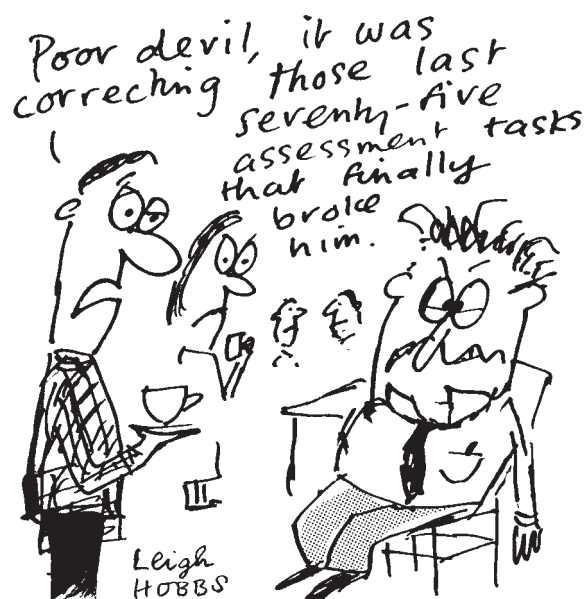 Poor devil, it was
correcting those last
seventy-five
assessment tasks
that finally
broke
him.
Leigh
HOBBS